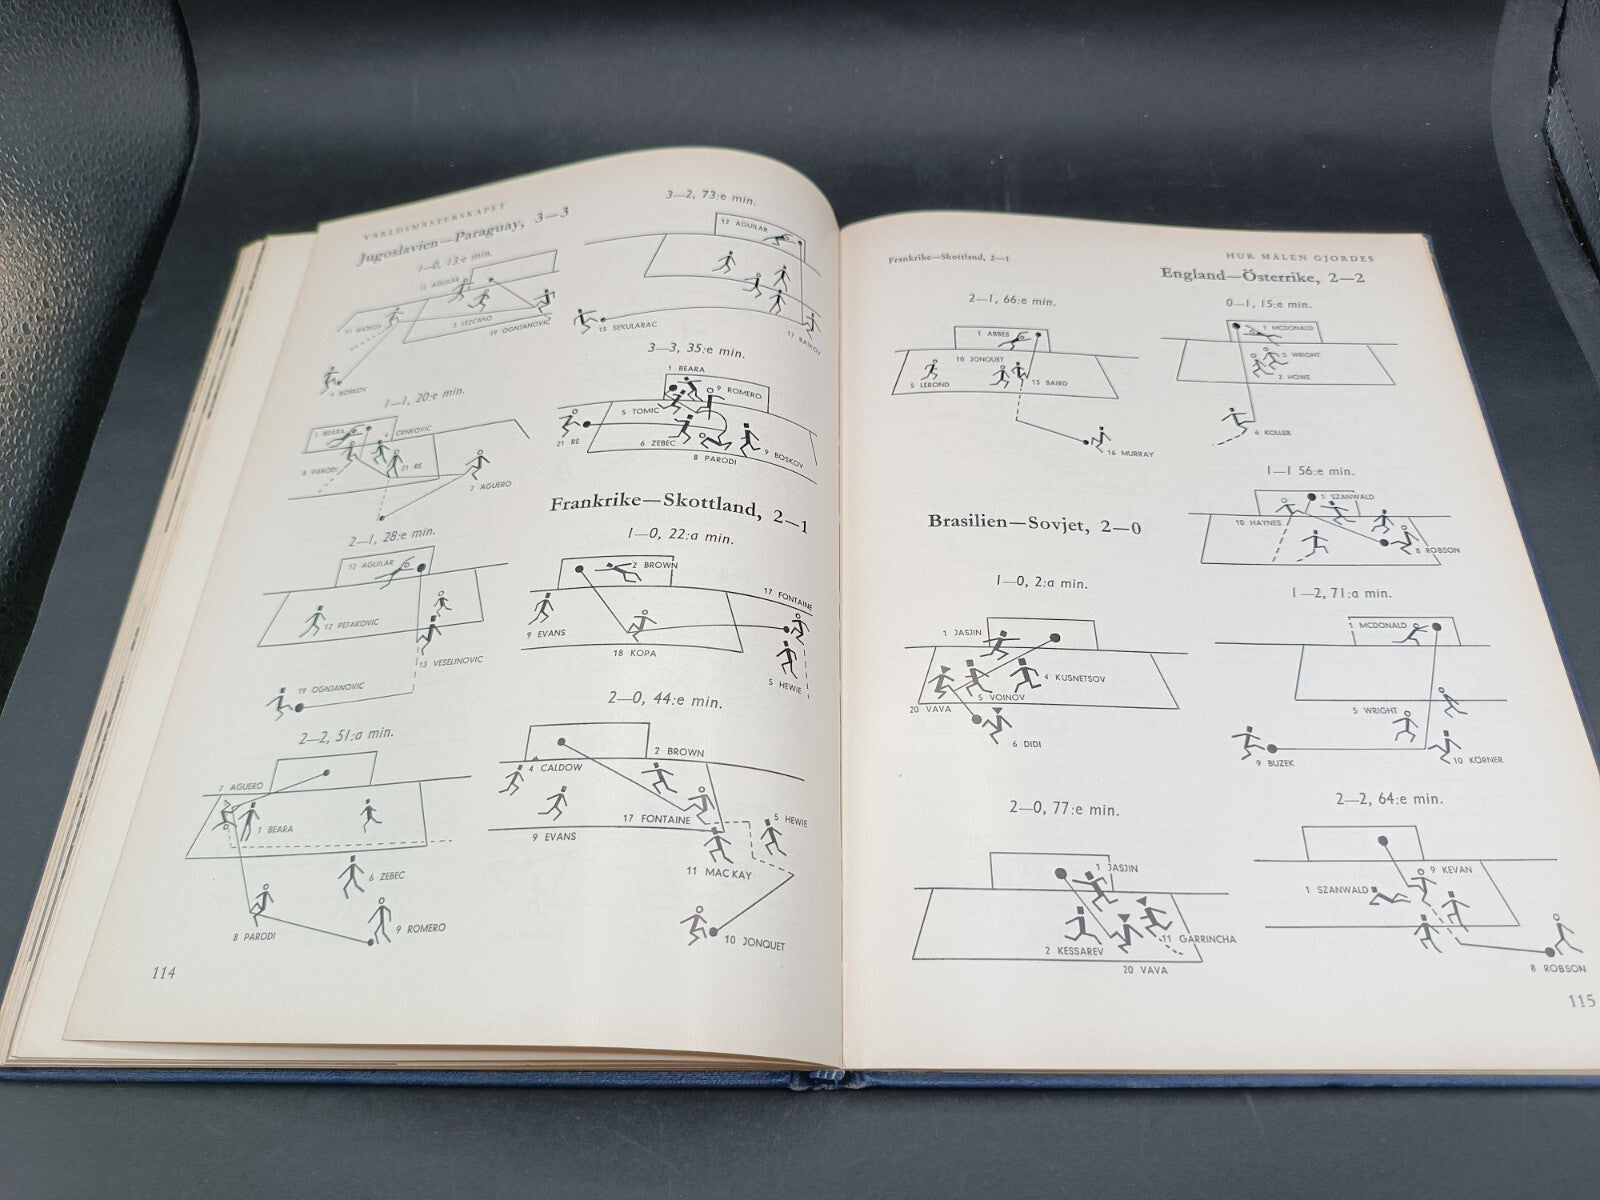 VÄRLDSMÄSTERSKAPET
Jugoslavien—Paraguay, 3—3
1—0, 13:e min.
12 AGUILAR
11 RAJKOV
3 LEZCANO
19 OGNJANOVIC
9 BOSKOV
1—1, 20:e min.
1 BEARA
CRNKOVIC
8 PARODI
21 RE
7 AGUERO
2—1, 28:e min.
12 AGUILAR
12 PETAKOVIC
13 VESELINOVIC
19 OGNJANOVIC
2—2, 51:a min.
7 AGUERO
1 BEARA
6 ZEBEC
8 PARODI
9 ROMERO
114
3—2, 73:e min.
12 AGUILAR
15 SEKULARAC
17 RAJKOV
3—3, 35:e min.
1 BEARA
9 ROMERO
5 TOMIC
21 RE
6 ZEBEC
8 PARODI
9 BOSKOV
Frankrike—Skottland, 2—1
1—0, 22:a min.
2 BROWN
17 FONTAINE
9 EVANS
18 KOPA
5 HEWIE
2—0, 44:e min.
2 BROWN
4 CALDOW
17 FONTAINE
5 HEWIE
9 EVANS
11 MACKAY
10 JONQUET
Frankrike—Skottland, 2—1
HUR MÅLEN GJORDES
2—1, 66:e min.
1 ABBES
10 JONQUET
5 LEROND
13 BAIRD
16 MURRAY
Brasilien—Sovjet, 2—0
1—0, 2:a min.
1 JASJIN
4 KUSNETSOV
5 VOINOV
20 VAVA
6 DIDI
2—0, 77:e min.
1 JASJIN
11 GARRINCHA
2 KESSAREV
20 VAVA
England—Österrike, 2—2
0—1, 15:e min.
1 MCDONALD
5 WRIGHT
2 HOWE
6 KOLLER
1—1 56:e min.
1 SZANWALD
10 HAYNES
8 ROBSON
1—2, 71:a min.
1 MCDONALD
5 WRIGHT
9 BUZEK
10 KÖRNER
2—2, 64:e min.
9 KEVAN
1 SZANWALD
8 ROBSON
115